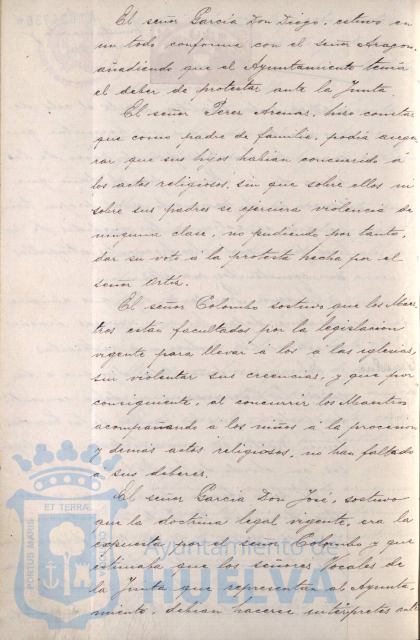 El señor García Don Diego, estuvo en
un todo conforme con el señor Aragon,
añadiendo que el Ayuntamiento tenia
el deber de protestar ante la Junta.
El señor Perez Arenas, hizo constar
que como padre de familia, podia asegu
rar que sus hijos habian concurrido á
los actos religiosos, sin que sobre ellos ni
sobre sus padres se ejerciera violencia de
ninguna clase, no pudiendo por tanto,
dar su voto á la protesta hecha por el
señor Ortiz.
El señor Colombo sostuvo que los Maes-
tros están facultados por la legislacion
vigente para llevar á los á las iglesias,
sin violentar sus creencias, y que por
consiguiente, al concurrir los Maestros
acompañando á los niños á la procesion
y demás actos religiosos, no han faltado
á sus deberes.
El señor García Don José, sostuvo
que la doctrina legal vigente, era la
expuesta por el señor Colombo y que
estimaba que los señores Vocales de
la Junta que representan al Ayunta-
miento, debian hacerse intérpretes ante
PORTUS MARIS
ET TERRAE
Ayuntamiento de
HUELVA